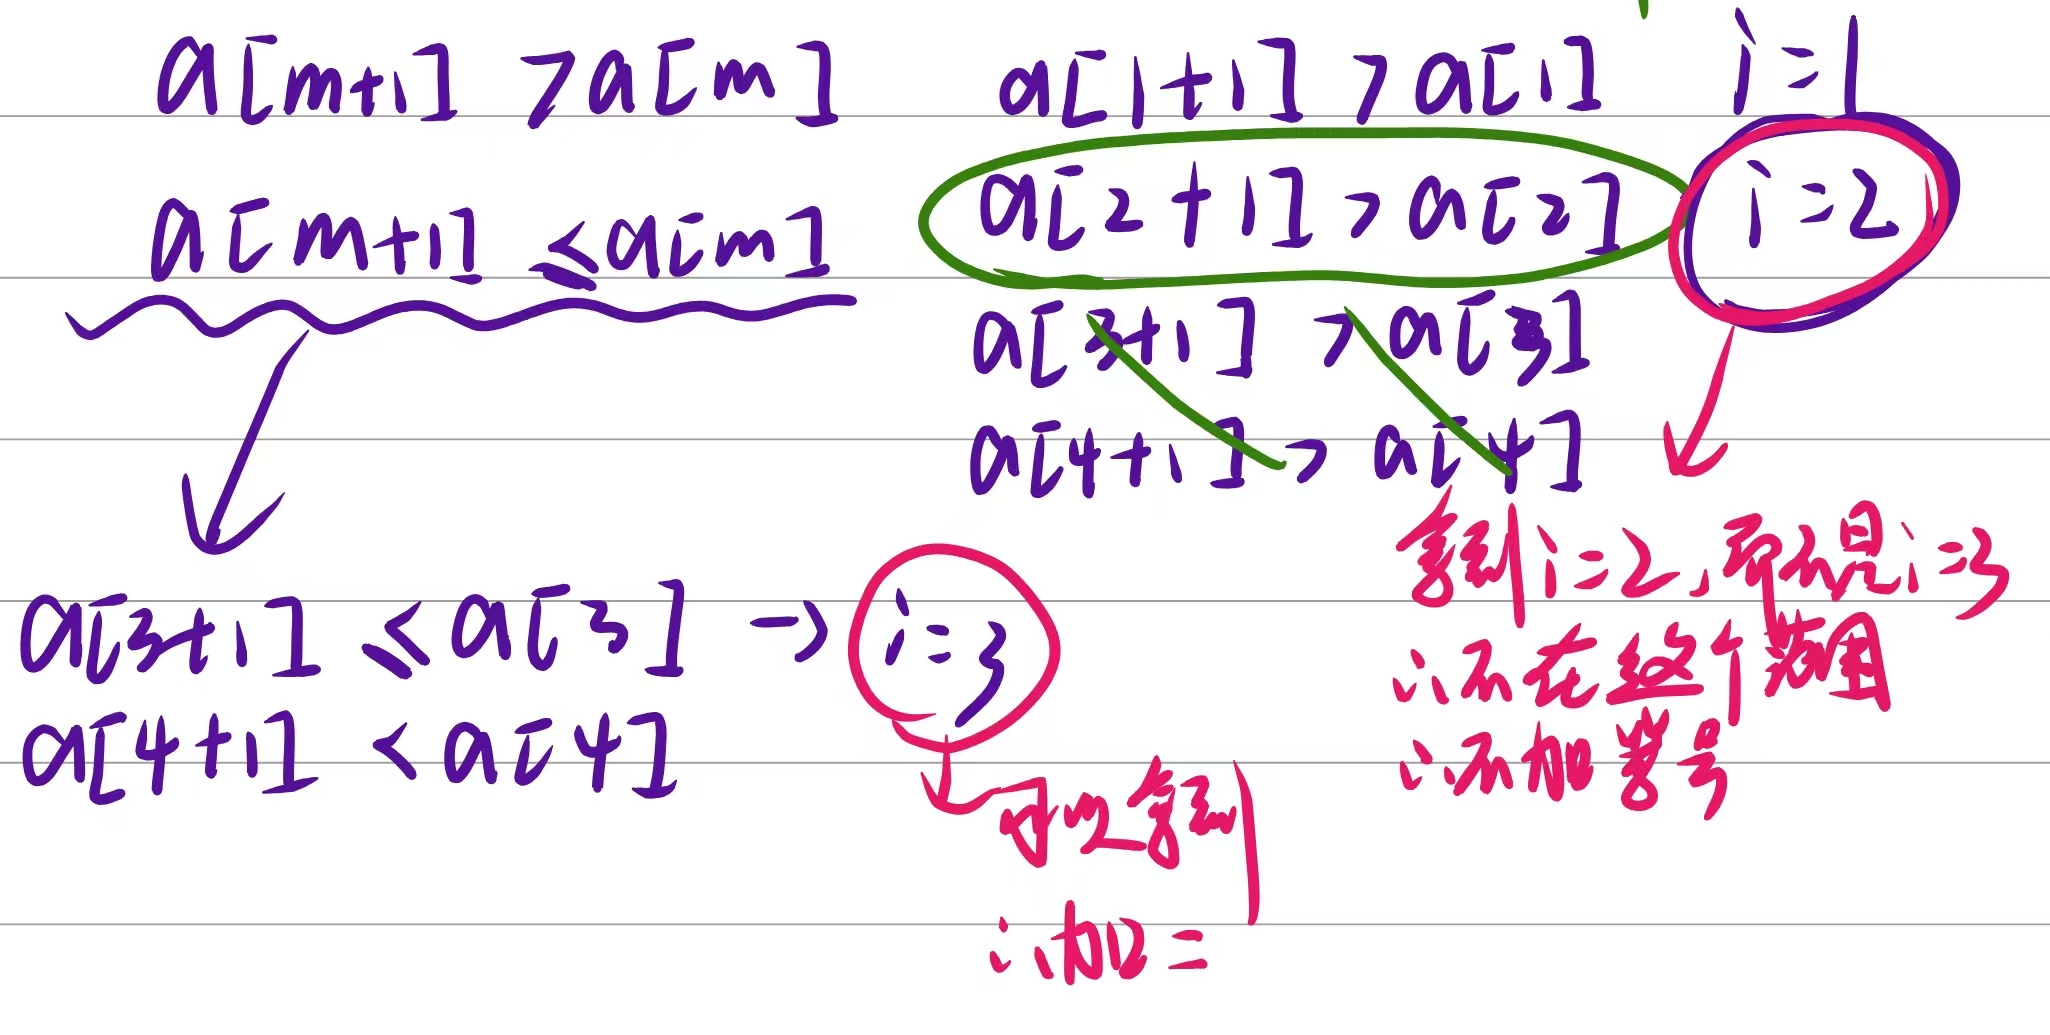 a[m+1] > a[m]
a[m+1] ≤ a[m]
a[1+1] > a[1] i=1
a[2+1] > a[2] i=2
a[3+1] > a[3]
a[4+1] > a[4]
拿到i=2,而不是i=3
∴不在这个范围
∴不加等号
a[3+1] ≤ a[3] → i=3
a[4+1] < a[4]
可以拿到
∴加=